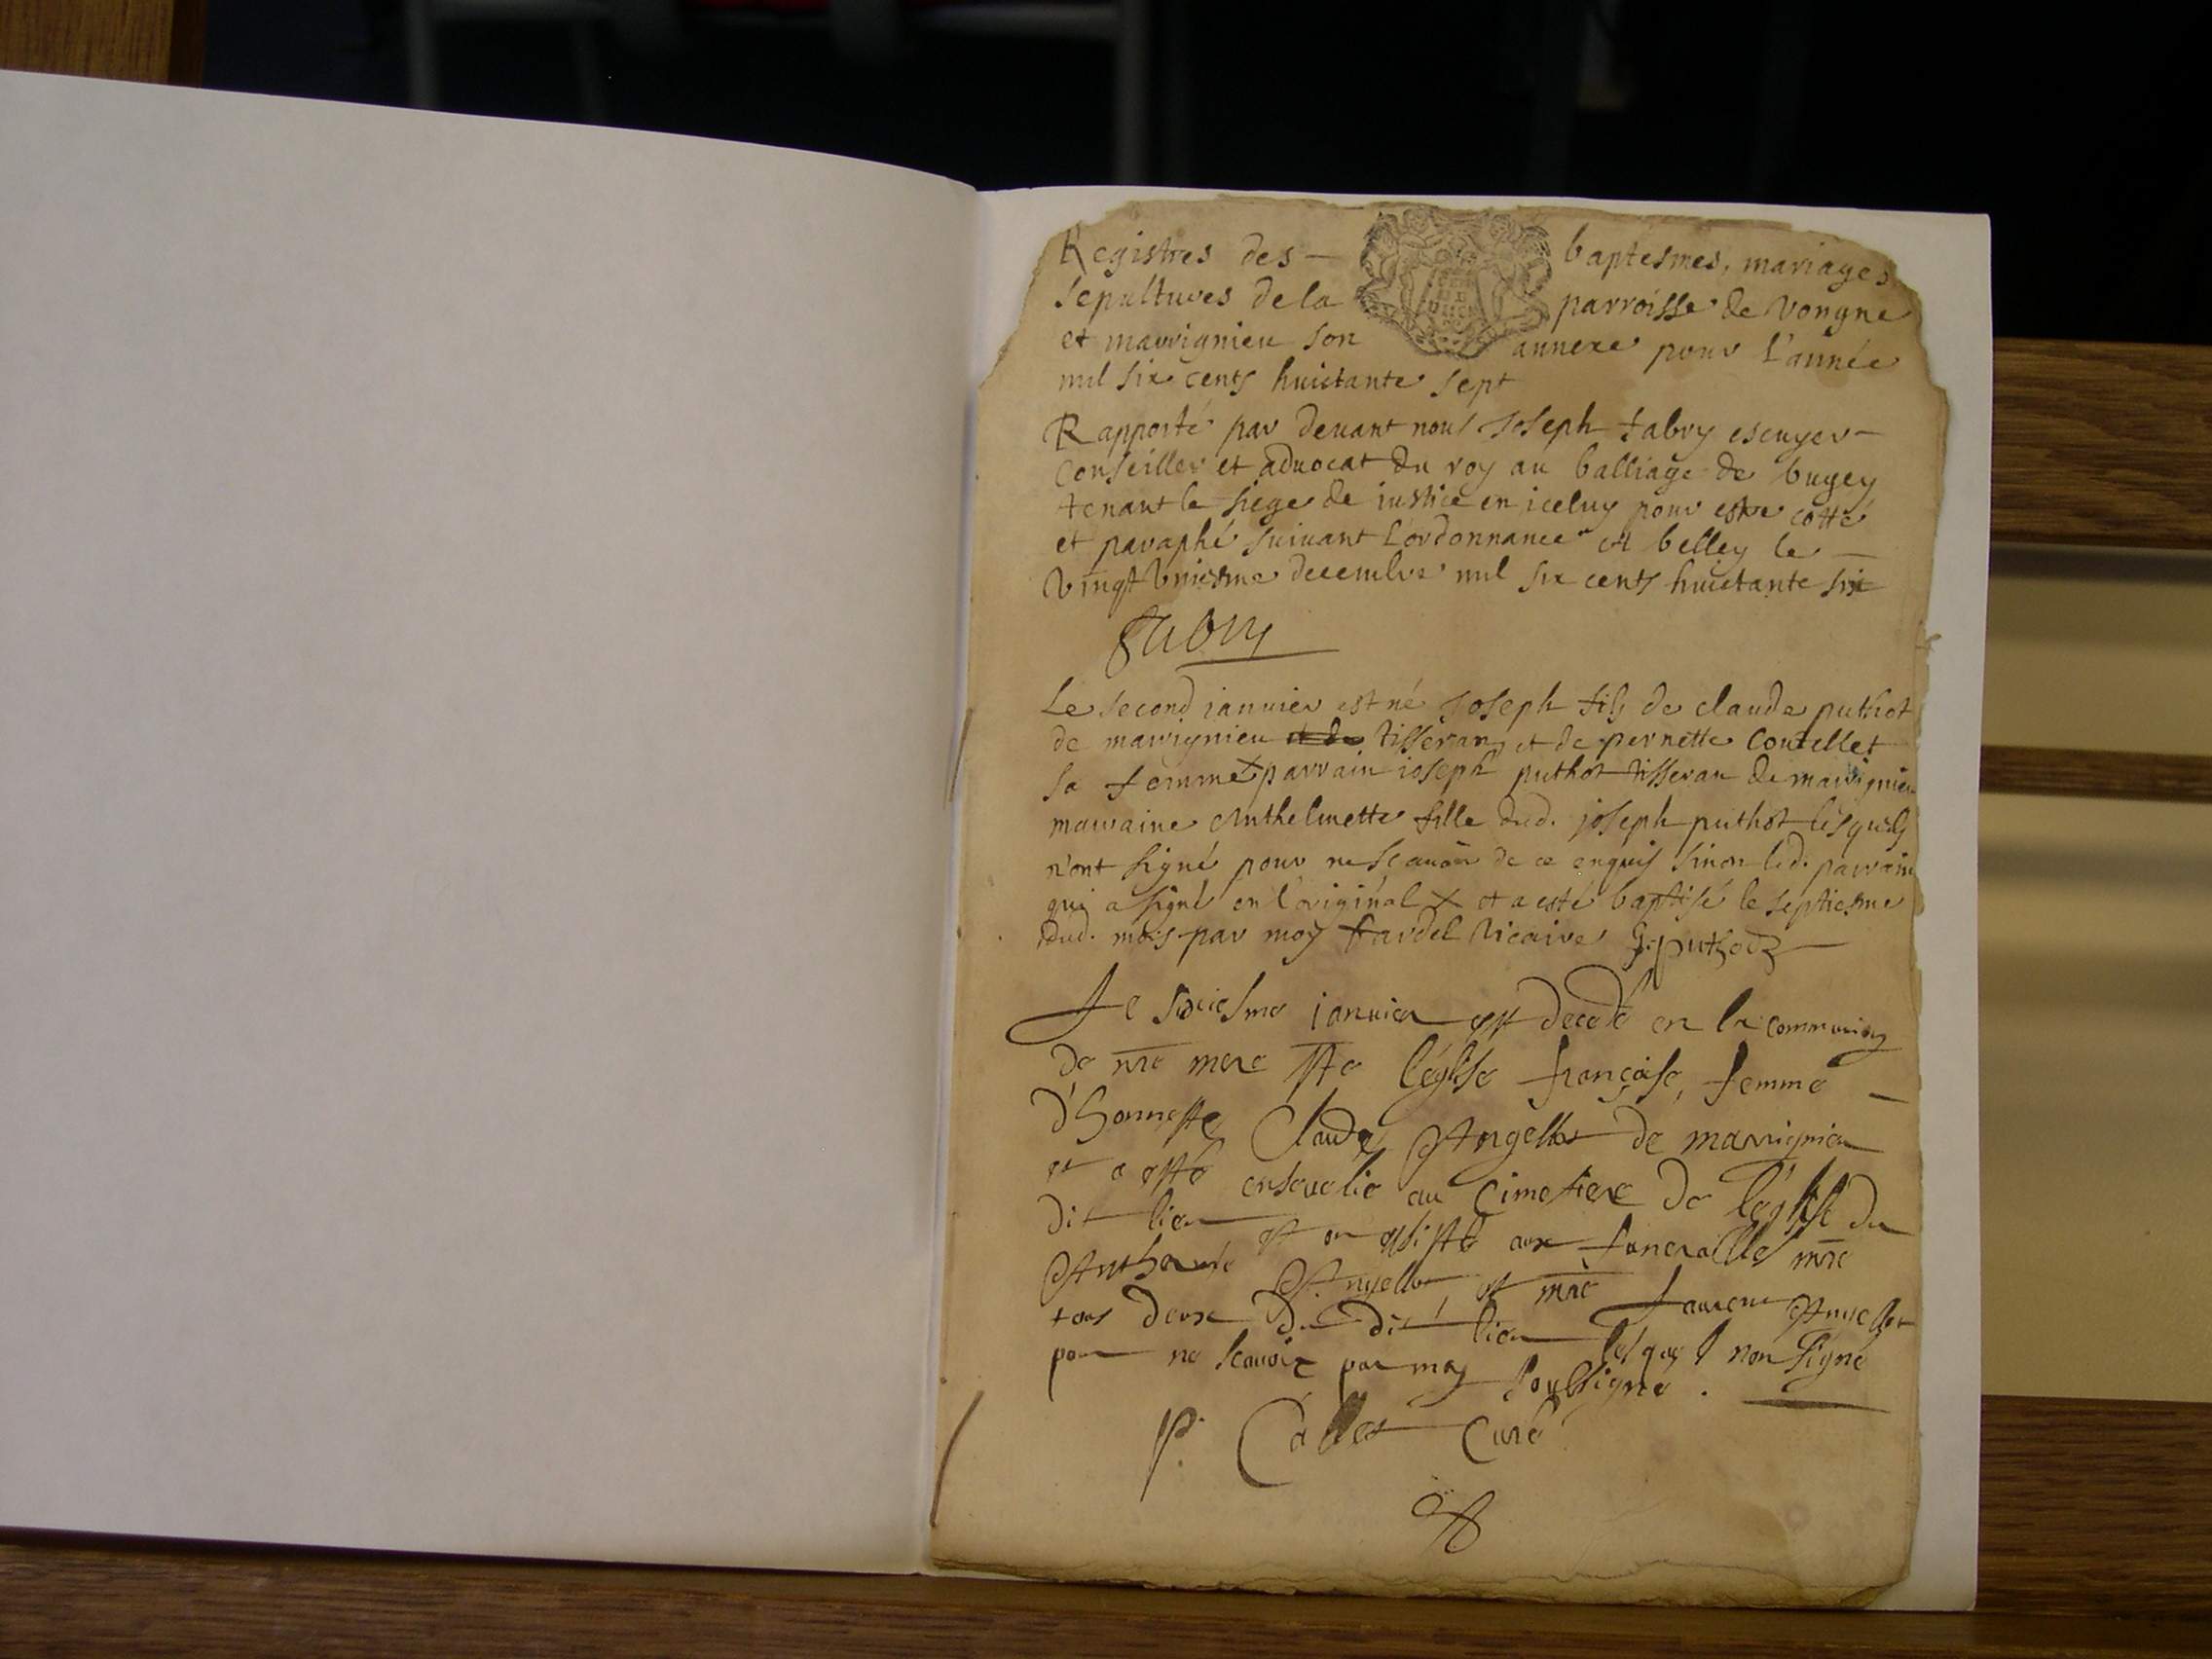 Registres des — baptesmes, mariages
sepultures de la parroisse de vongne
et marrignieu son annexe pour l'année
mil six cents huictante sept
Rapporté par devant nous Joseph fabry escuyer —
Conseiller et advocat du roy au balliage de bugey
tenant le siege de justice en iceluy pour estre cotté
et paraphé suivant l'ordonnance A belley le —
vingt uniesme decembre mil six cents huictante six
fabry
Le second januier est né Joseph fils de claude puthot
de marrignieu et de tisseran, et de pernette Coutellet
sa femme x parrain joseph puthot tisseran de marrignieu
marraine Anthelmette fille dud. joseph puthot lesquels
n'ont signé pour ne scauoir de ce enquis sinon led. parrain
qui a signé en l'original x et a esté baptisé le septiesme
dud. mois par moy fardel vicaire J. puthod
Le sixiesme januier est decedé en la communion
de nre mere Ste l'église françoise, femme —
d'honneste Claude Angellot de marrignieu
et a esté enseuelie au cimetiere de l'église du
dit lieu et on assisté aux funeraille mre
Anthelme Angellot, et mre Laurent Angellot
tous deux du dit lieu lesquels non signé
pour ne scauoir par moy soubsigné.
P. Callet Curé